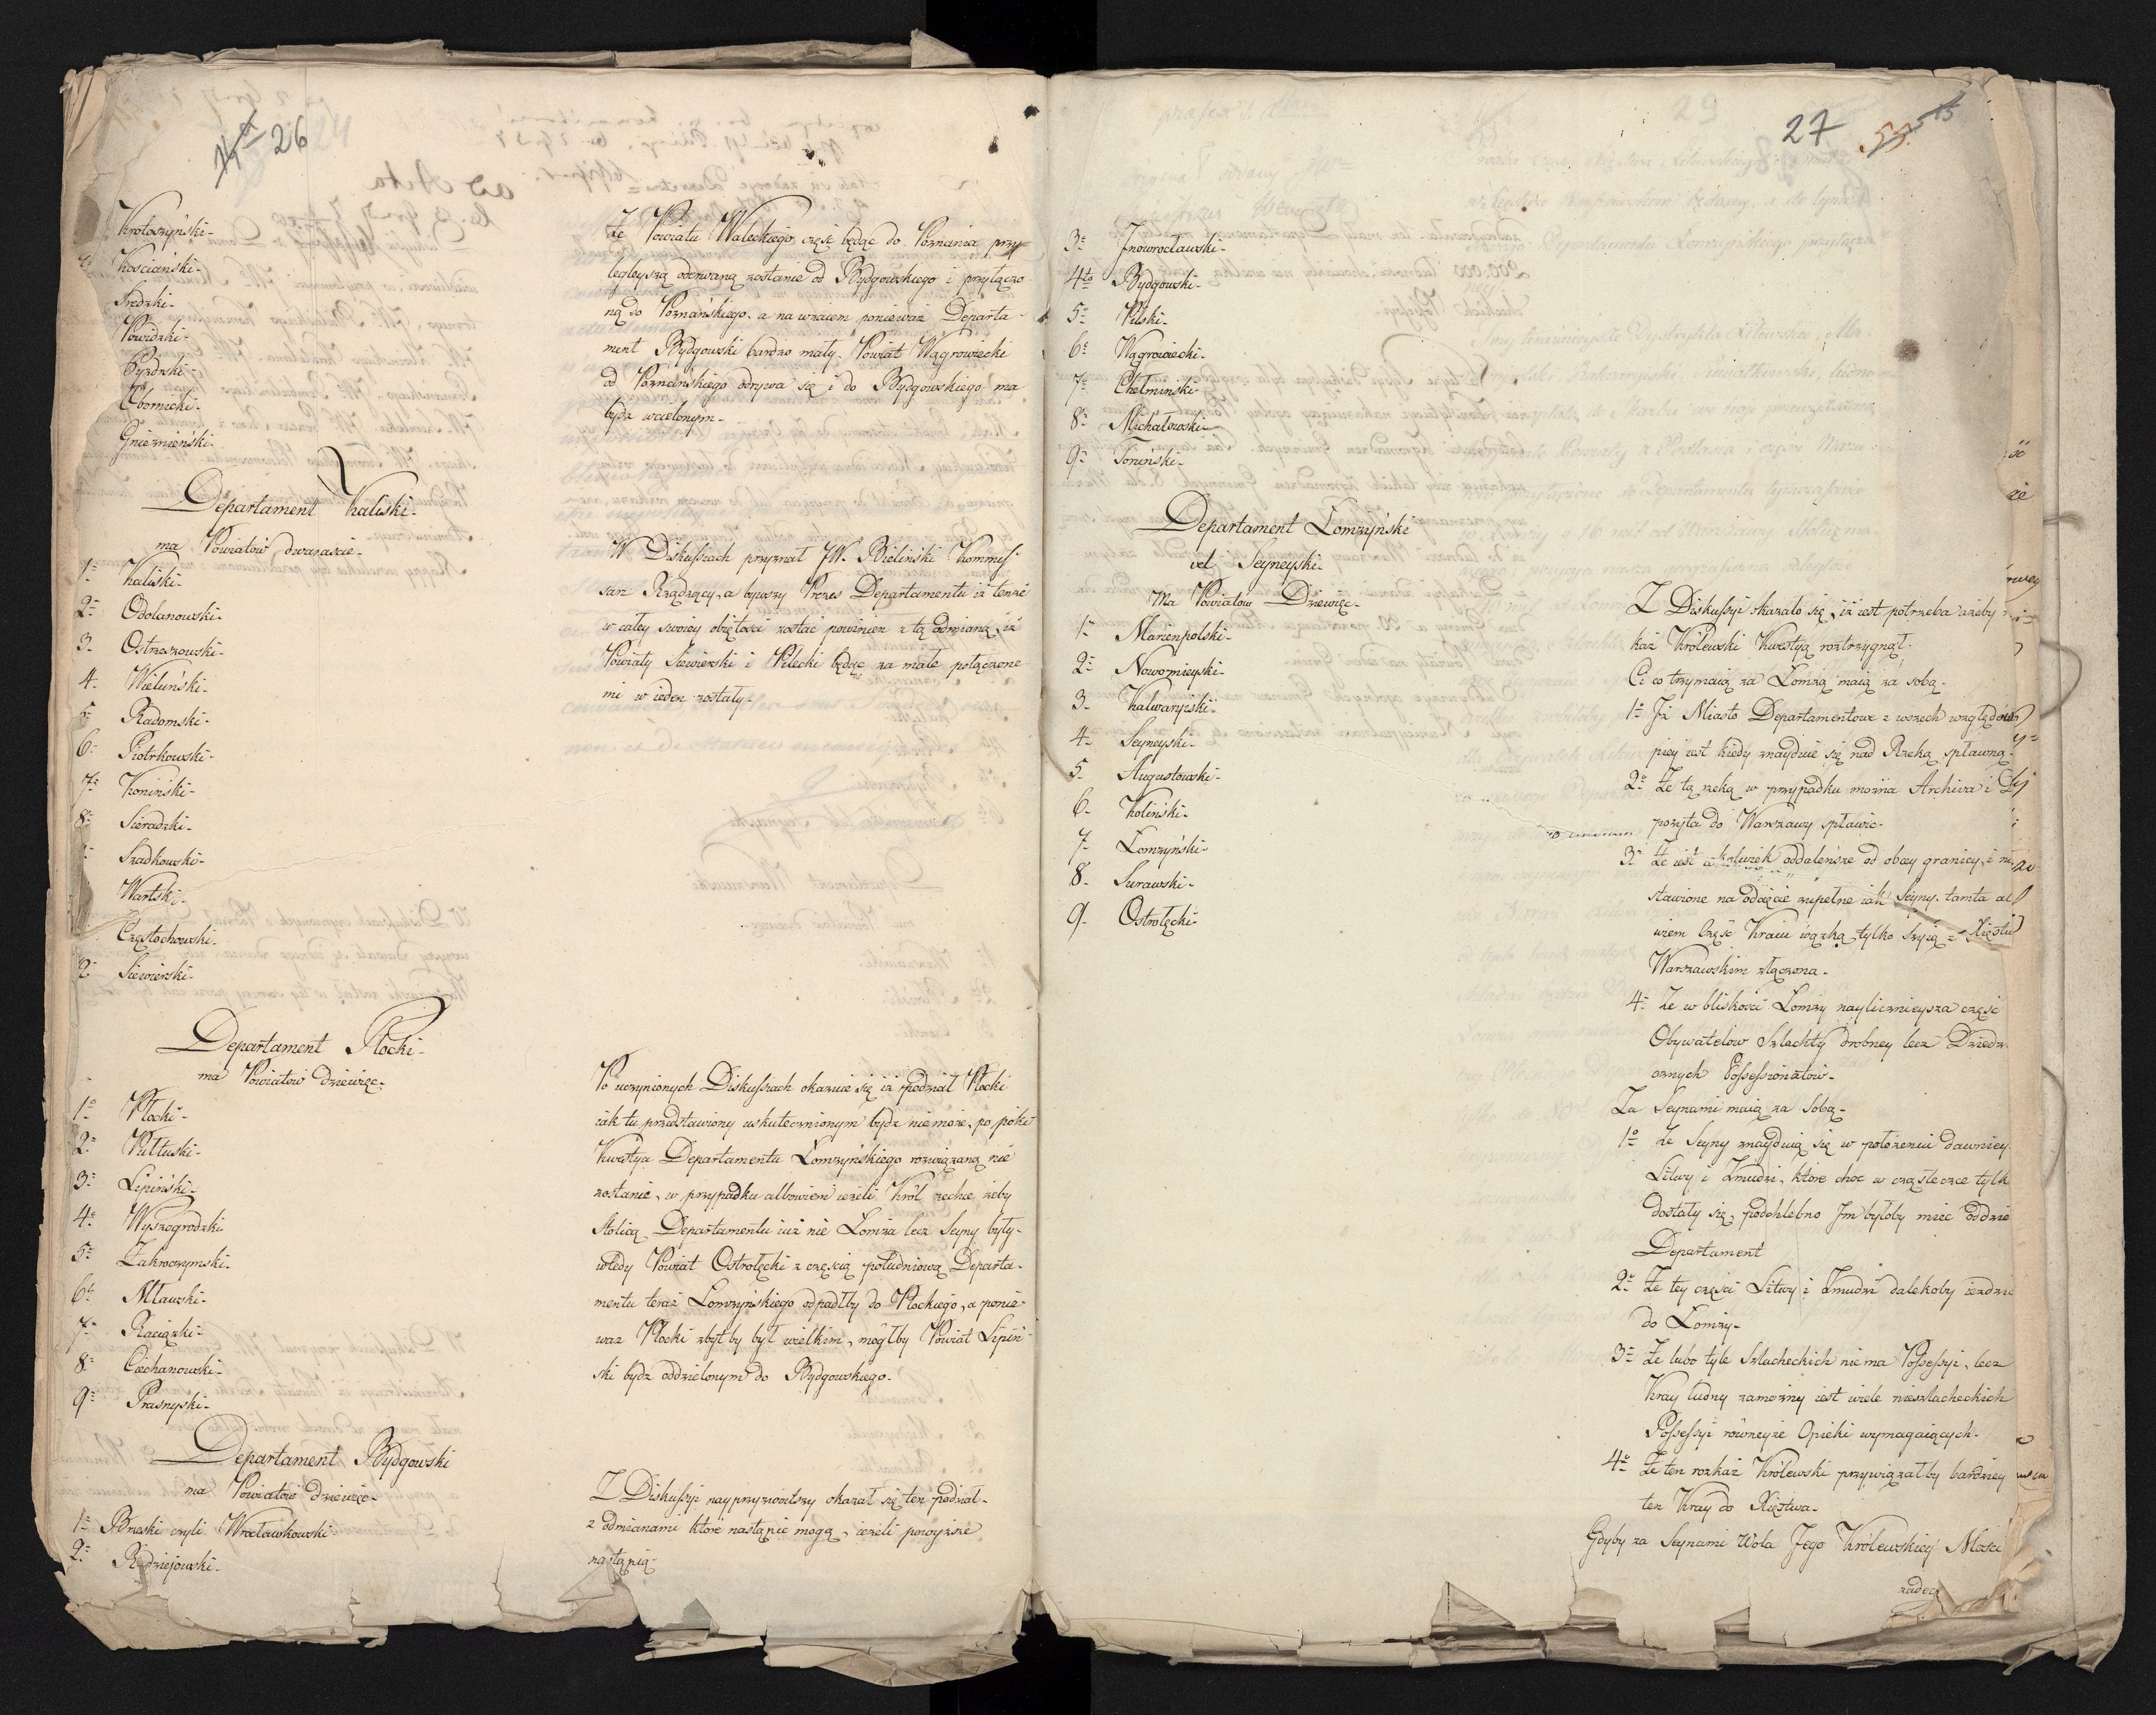 26
Krotoszyński-
Kościański-
Sredzki-
Powidzki-
Pyzdrski-
Obornicki-
Gnieznieński-
Że Powiatu Wałeckiego część będąc do Poznania przy
legleyszą oderwaną zostanie od Bydgoskiego i przyłączo
ną do Poznańskiego, a na wzaiem ponieważ Departa-
ment Bydgowski bardzo mały, Powiat Wągrowiecki
od Poznańskiego odrywa się i do Bydgowskiego ma
bydź wcielonym-
Departament Kaliski-
ma Powiatów dwanaście-
1- Kaliski-
2- Odolanowski-
3- Ostrzeszowski-
4- Wieluński-
5- Radomski-
6- Piotrkowski-
7- Koniński-
8- Sieradzki-
Szadkowski-
Wartski-
Częstochowski-
2- Siewierski-
W Diskussiach przyznał JW. Bieliński Kommis-
sarz Rządzący, a bywszy Prezes Departamentu iż tenże
w całey swoiey obiętości zostać powinien z tą odmianą, iż
Powiaty Siewierski i Pilecki będąc za małe połączone
mi w ieden zostały-
Departament Płocki-
ma Powiatów dziewięc-
1o Płocki-
2- Pułtuski-
3- Lipiński-
4- Wyszogrodzki
5- Zakroczymski-
6t Mławski-
7- Raciązki-
8- Ciechanowski-
9- Prasnyski-
Po uczynionych Diskussiach okazuie się iż podział Płocki
iak tu przedstawiony uskutecznionym bydz niemoże, po poki
Kwestya Departamentu Łomżyńskiego rozwiązaną nie
zostanie, w przypadku albowiem ieżeli Król zechce żeby
stolicą Departamentu iuż nie Łomża lecz Seyny były-
wtedy Powiat Ostrołęcki z częścią południową Departa-
mentu teraz Łomżyńskiego odpadłby do Płockiego, a ponie-
waż Płocki zbytby był wielkim, mógłby Powiat Lipiń-
ski bydz oddzielonym do Bydgowskiego-
Departament Bydgowski
ma Powiatów dziewięc-
1- Brzeski czyli Włocławkowski-
2- Radziejowski-
Z Diskussyi nayprzyzwoitszy okazał się ten podział-
z odmianami które nastąpic mogą, ieżeli powyższe
nastąpią-
27
3- Jnowrocławski-
4to Bydgowski-
5- Pilski-
6- Wągrowiecki-
7- Chełminski-
8- Michałowski-
9- Toruński-
Departament Łomżyński
vel Seyneyski-
Ma Powiatów Dziewięc-
1- Marienpolski-
2- Nowomieyski-
3- Kalwaryiski-
4- Seyneyski-
5- Augustowski-
6- Koliński-
7- Łomżyński-
8- Surawski-
9- Ostrołęcki-
Z Diskussyi okazało się, iż iest potrzeba ażeby
kaz Królewski Kwestyą roztrzygnął.
Ci co trzymaią za Łomżą maią za sobą-
1- Jż Miasto Departamentowe z wszech względów
piey iest kiedy znayduie się nad Rzeką spławną-
2- Że tą rzeką w przypadku można Archiva i
pozyta do Warszawy spławic-
3- Że iest cokolwiek oddaleńsze od obcey granicy, i
stawione na odcięcie zupełne iak Seyny, tamta al
wiem Część Kraiu wązką tylko szyią z Xięstw
Warszawskim złączona-
4- Że w bliskości Łomży naylicznieysza część
Obywatelów Szlachty drobney lecz Dziedz-
cznych Possessionatów-
Za Seynami maią za Sobą-
1o Że Seyny znayduią się w położeniu dawniey
Litwy i Zmudzi, które choc w cząsteczce tylk
dostały się, podchlebno Jm byłoby miec oddzie
Departament
2o Że tey części Litwy i Zmudzi dalekoby iezdzic
do Łomży-
3- Że lubo tyle Szlacheckich nie ma Possessyi, lecz
Kray ludny zamożny iest wiele nieszlacheckich
Possessyi rówńeyże Opieki wymagaiących-
4o Że ten rozkaz Królewski przywiązałby bardziey
ten Kray do Xięstwa-
Gdyby za Seynami Wola Jego Królewskiey Mości